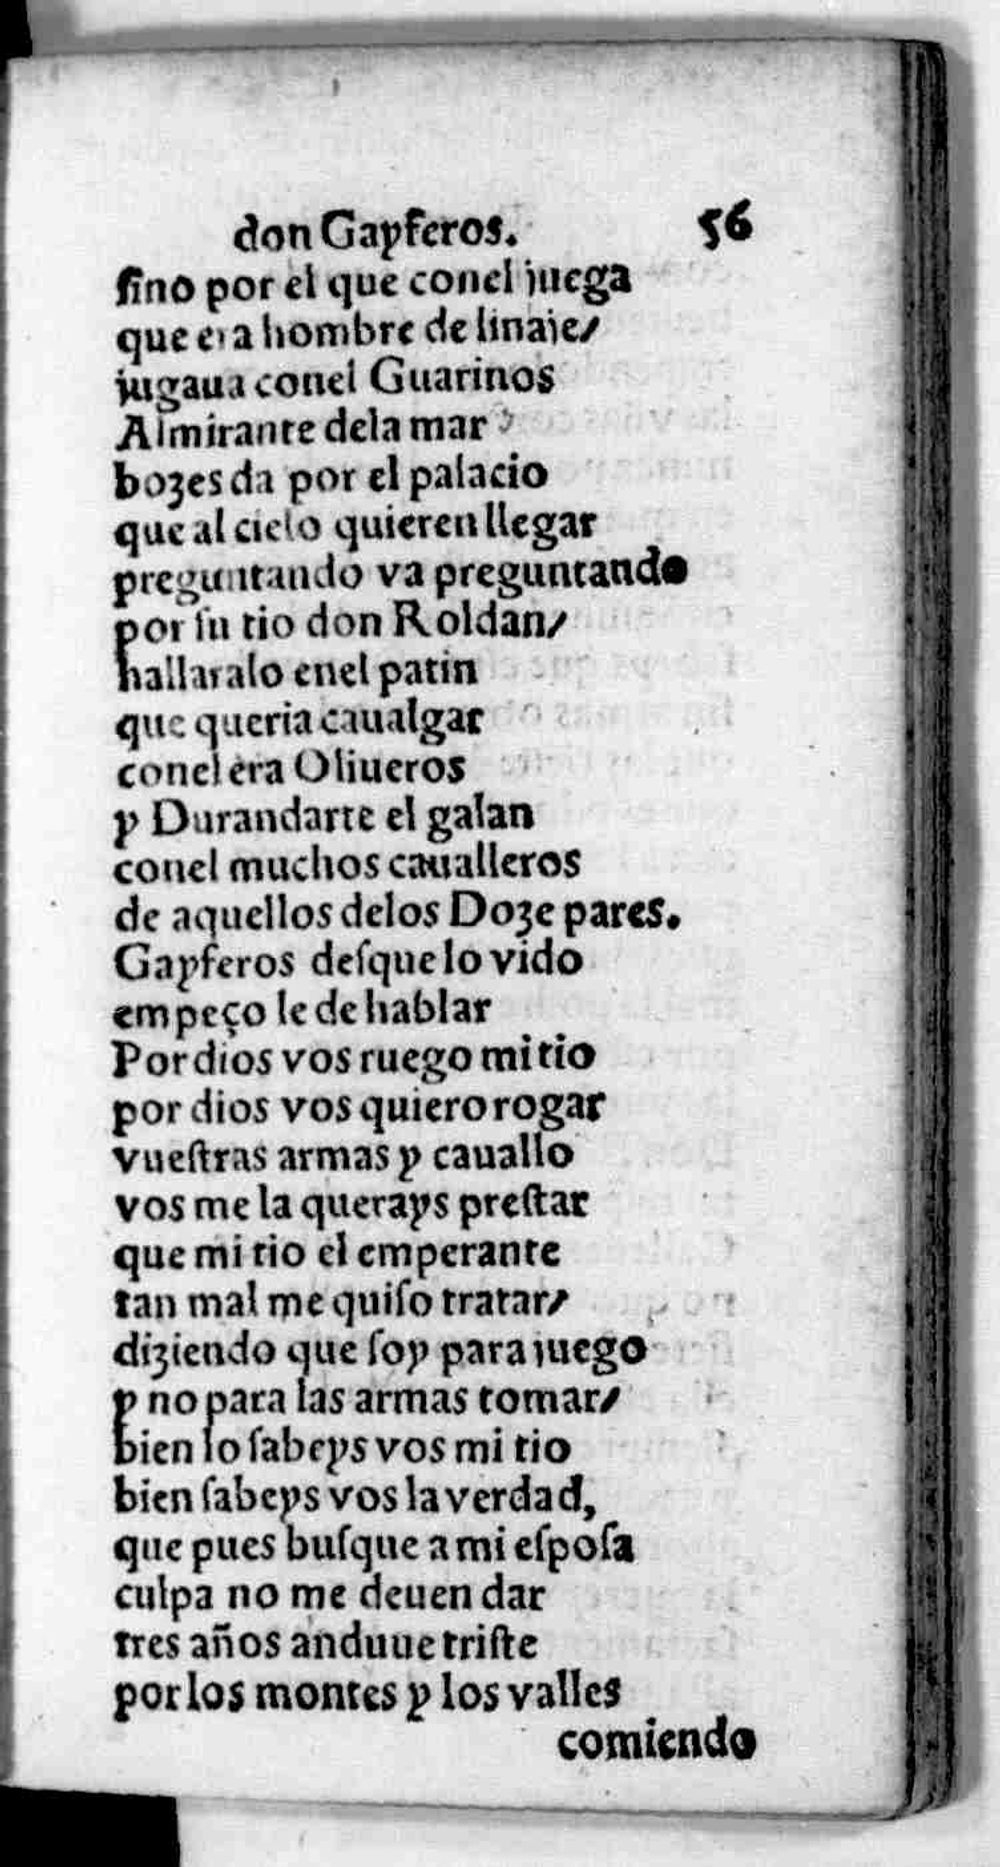 don Gayferos. 56
ſino por el que conel juega
que era hombre de linaje/
jugaua conel Guarinos
Almirante dela mar
bozes da por el palacio
que al cielo quieren llegar
preguntando va preguntando
por ſu tio don Roldan/
hallaralo enel patin
que queria caualgar
conel era Oliueros
y Durandarte el galan
conel muchos caualleros
de aquellos delos Doze pares.
Gayferos deſque lo vido
empeço le de hablar
Por dios vos ruego mi tio
por dios vos quiero rogar
vueſtras armas y cauallo
vos me la querays preſtar
que mi tio el emperante
tan mal me quiſo tratar/
diziendo que ſoy para juego
y no para las armas tomar/
bien lo ſabeys vos mi tio
bien ſabeys vos la verdad,
que pues buſque a mi eſpoſa
culpa no me deuen dar
tres años anduue triſte
por los montes y los valles
comiendo